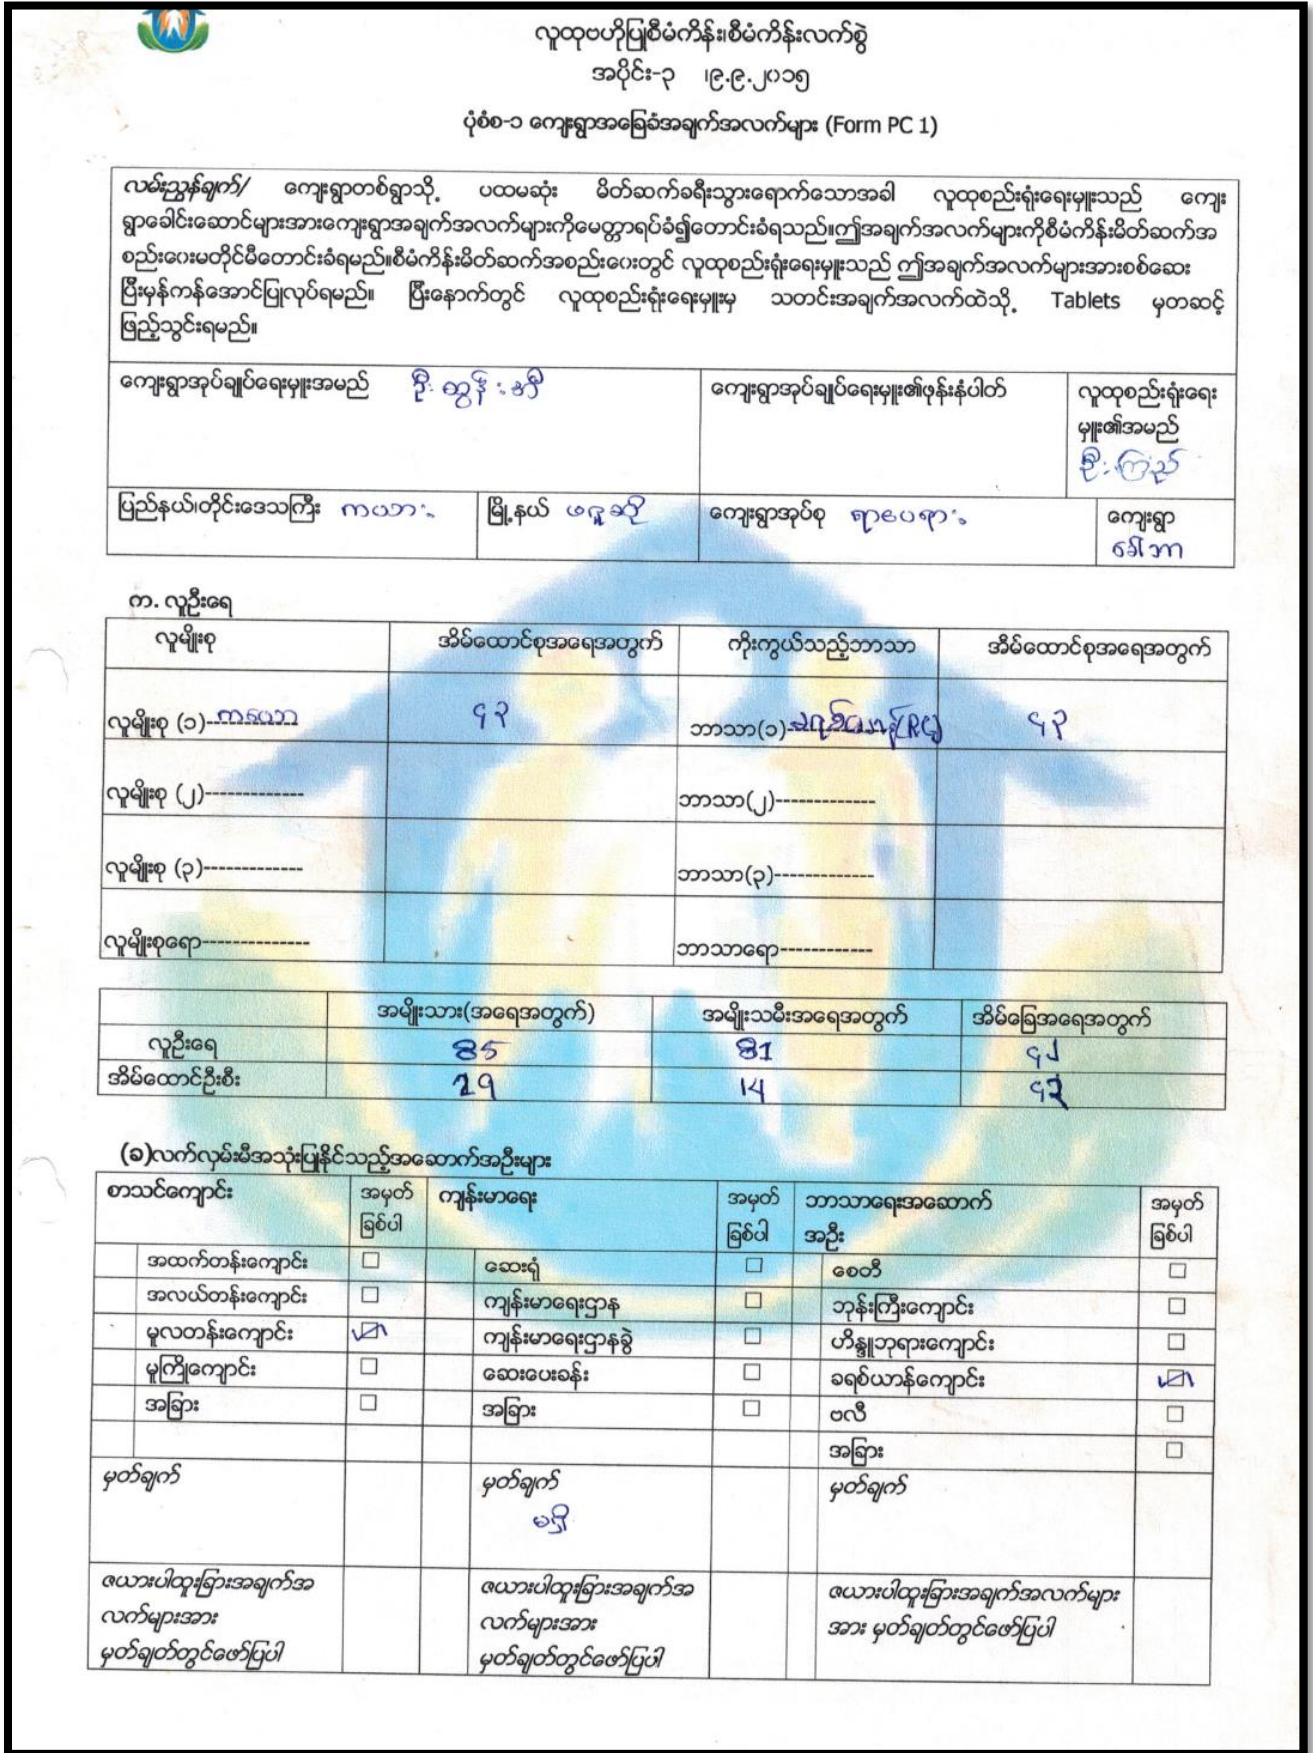 လူထုဗဟိုပြုစီမံကိန်း၊စီမံကိန်းလက်စွဲ
အပိုင်း-၃ ၊၉.၉.၂၀၁၅
ပုံစံစ-၁ ကျေးရွာအခြေခံအချက်အလက်များ (Form PC 1)
လမ်းညွှန်ချက်/ ကျေးရွာတစ်ရွာသို့ ပထမဆုံး မိတ်ဆက်ခရီးသွားရောက်သောအခါ လူထုစည်းရုံးရေးမှူးသည် ကျေး
ရွာခေါင်းဆောင်များအားကျေးရွာအချက်အလက်များကိုမေတ္တာရပ်ခံ၍တောင်းခံရသည်။ဤအချက်အလက်များကိုစီမံကိန်းမိတ်ဆက်အ
စည်းဝေးမတိုင်မီတောင်းခံရမည်။စီမံကိန်းမိတ်ဆက်အစည်းဝေးတွင် လူထုစည်းရုံးရေးမှူးသည် ဤအချက်အလက်များအားစစ်ဆေး
ပြီးမှန်ကန်အောင်ပြုလုပ်ရမည်။ ပြီးနောက်တွင် လူထုစည်းရုံးရေးမှူးမှ သတင်းအချက်အလက်ထဲသို့ Tablets မှတဆင့်
ဖြည့်သွင်းရမည်။
ကျေးရွာအုပ်ချုပ်ရေးမှူးအမည် ဦး ထွန်း ကျေးရွာအုပ်ချုပ်ရေးမှူး၏ဖုန်းနံပါတ် လူထုစည်းရုံးရေး
မှူး၏အမည်
ဦးကြည်
ပြည်နယ်၊တိုင်းဒေသကြီး ကယား မြို့နယ် ဖရူဆို ကျေးရွာအုပ်စု ကျေးရွာ
က. လူဦးရေ
လူမျိုးစု အိမ်ထောင်စုအရေအတွက် ကိုးကွယ်သည့်ဘာသာ အိမ်ထောင်စုအရေအတွက်
လူမျိုးစု (၁)-ကယော ၄၃ ဘာသာ(၁)-ခရစ်ယာန်(RC) ၄၃
လူမျိုးစု (၂)------------- ဘာသာ(၂)-------------
လူမျိုးစု (၃)------------- ဘာသာ(၃)-------------
လူမျိုးစုရော-------------- ဘာသာရော------------
အမျိုးသား(အရေအတွက်) အမျိုးသမီးအရေအတွက် အိမ်ခြေအရေအတွက်
လူဦးရေ 85 81 ၄၂
အိမ်ထောင်ဦးစီး 29 14 ၄၃
(ခ)လက်လှမ်းမီအသုံးပြုနိုင်သည့်အဆောက်အဦးများ
စာသင်ကျောင်း အမှတ် ကျန်းမာရေး အမှတ် ဘာသာရေးအဆောက် အမှတ်
ခြစ်ပါ ခြစ်ပါ အဦး ခြစ်ပါ
အထက်တန်းကျောင်း ☐ ဆေးရုံ ☐ စေတီ ☐
အလယ်တန်းကျောင်း ☐ ကျန်းမာရေးဌာန ☐ ဘုန်းကြီးကျောင်း ☐
မူလတန်းကျောင်း ☑ ကျန်းမာရေးဌာနခွဲ ☐ ဟိန္ဒူဘုရားကျောင်း ☐
မူကြိုကျောင်း ☐ ဆေးပေးခန်း ☐ ခရစ်ယာန်ကျောင်း ☑
အခြား ☐ အခြား ☐ ဗလီ ☐
အခြား ☐
မှတ်ချက် မှတ်ချက် မှတ်ချက်
မရှိ
ဇယားပါထူးခြားအချက်အ ဇယားပါထူးခြားအချက်အ ဇယားပါထူးခြားအချက်အလက်များ
လက်များအား လက်များအား အား မှတ်ချတ်တွင်ဖော်ပြပါ
မှတ်ချတ်တွင်ဖော်ပြပါ မှတ်ချတ်တွင်ဖော်ပြပါ